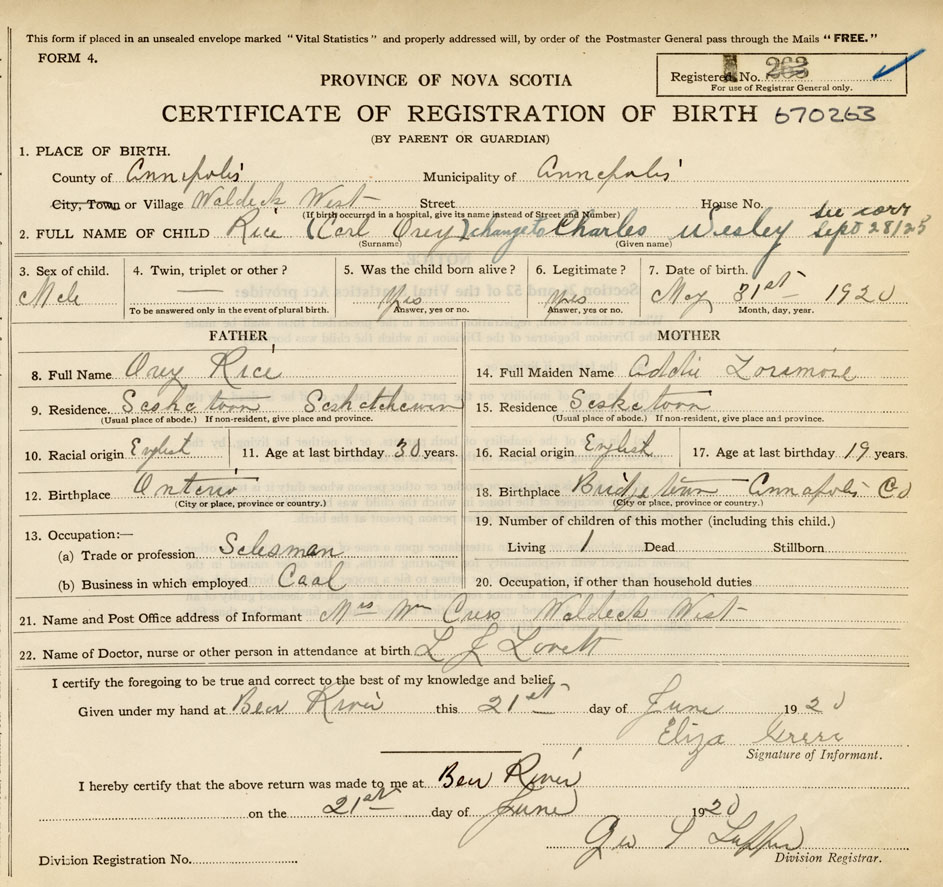 This form if placed in an unsealed envelope marked "Vital Statistics" and properly addressed will, by order of the Postmaster General pass through the Mails "FREE."
FORM 4.
Registered No. 263
For use of Registrar General only.
PROVINCE OF NOVA SCOTIA
CERTIFICATE OF REGISTRATION OF BIRTH 670263
(BY PARENT OR GUARDIAN)
1. PLACE OF BIRTH.
County of Annapolis Municipality of Annapolis
City, Town or Village Waldeck West Street House No.
(If birth occurred in a hospital, give its name instead of Street and Number)
see corr
2. FULL NAME OF CHILD Rice (Carl Orey) change to Charles Wesley Sept 28/25
(Surname) (Given name)
3. Sex of child. 4. Twin, triplet or other? 5. Was the child born alive? 6. Legitimate? 7. Date of birth.
Male — Yes Yes May 31st 1920
To be answered only in the event of plural birth. Answer, yes or no. Answer, yes or no. Month, day, year.
FATHER MOTHER
8. Full Name Orey Rice 14. Full Maiden Name Addie Loramore
9. Residence. Saskatoon Saskatchewan 15. Residence Saskatoon
(Usual place of abode.) If non-resident, give place and province. (Usual place of abode.) If non-resident, give place and province.
10. Racial origin English 11. Age at last birthday 30 years. 16. Racial origin English 17. Age at last birthday 19 years.
12. Birthplace Ontario 18. Birthplace Bridgetown Annapolis Co
(City or place, province or country.) (City or place, province or country.)
13. Occupation:— 19. Number of children of this mother (including this child.)
(a) Trade or profession Salesman Living 1 Dead Stillborn
(b) Business in which employed Coal 20. Occupation, if other than household duties
21. Name and Post Office address of Informant Mrs Wm Waldeck West
22. Name of Doctor, nurse or other person in attendance at birth L J Lovett
I certify the foregoing to be true and correct to the best of my knowledge and belief.
Given under my hand at Bear River this 21st day of June 1920
Eliza
Signature of Informant.
I hereby certify that the above return was made to me at Bear River
on the 21st day of June 1920
Geo
Division Registration No. Division Registrar.